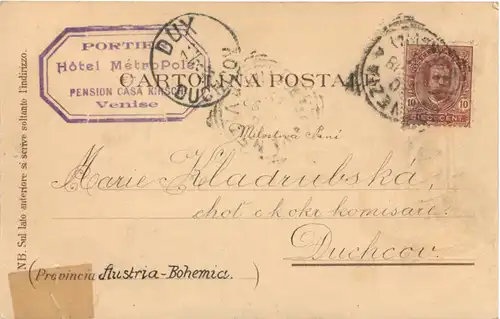 PORTIE
Hôtel Métropole
PENSION CASA KIRSCH
Venise
DUX
DUCHCOV
CARTOLINA POSTALE
VENEZIA
10 10
Milostivá Paní
Marie Kladrubská,
choť c k okr komisaře.
Duchcov.
(Provincia Austria-Bohemia.)
NB. Sul lato anteriore si scrive soltanto l'indirizzo.